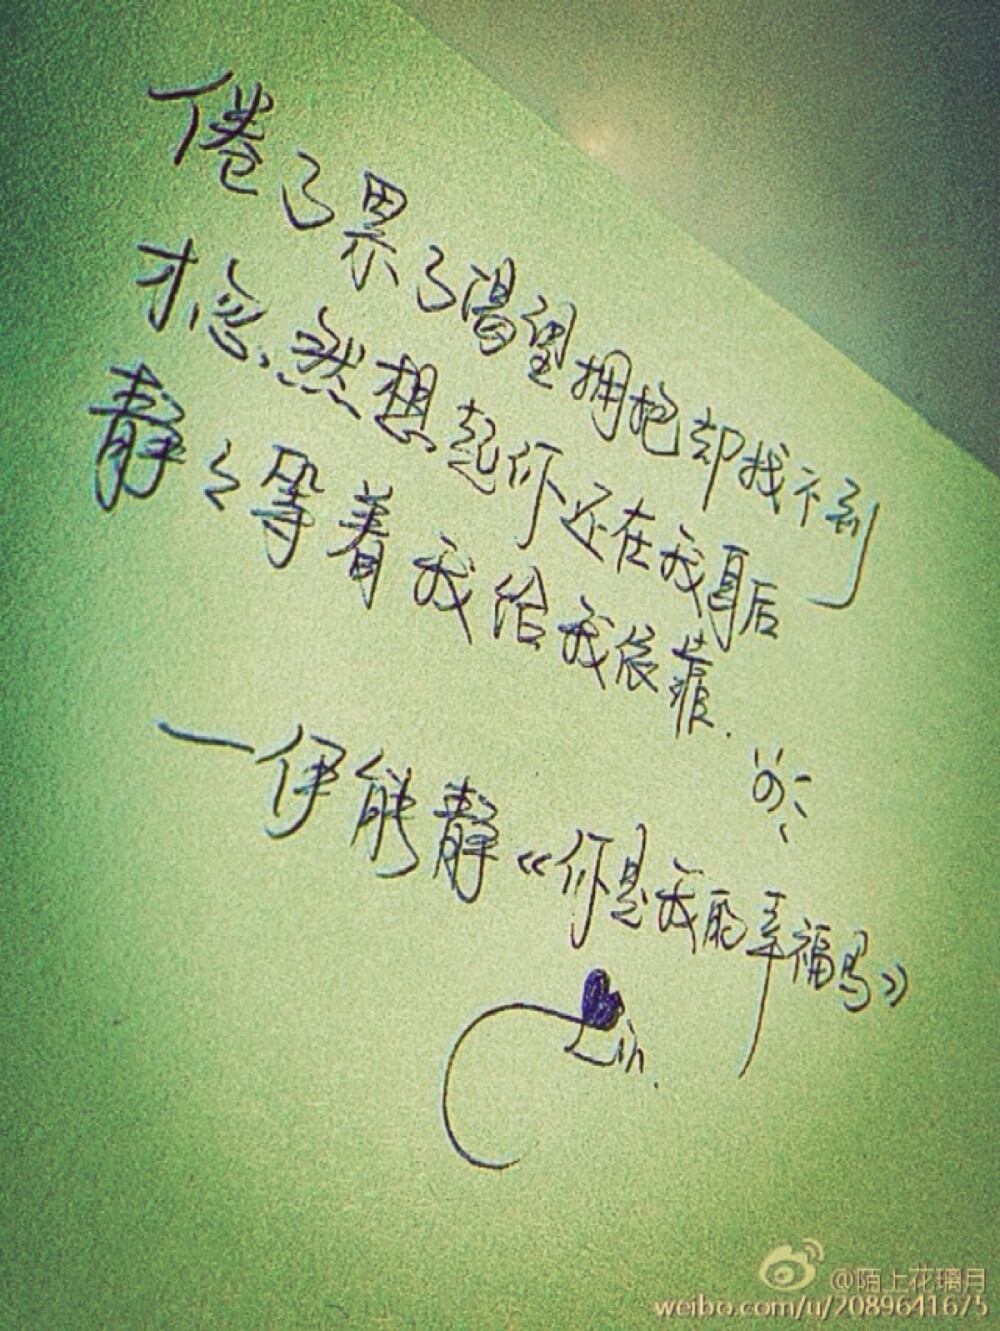 倦了累了渴望拥抱却找不到
才忽然想起你还在我身后
静々等着我给我依靠.
一伊能静《你是我的幸福吗》
Lin.
@陌上花璃月
weibo.com/u/2089641675